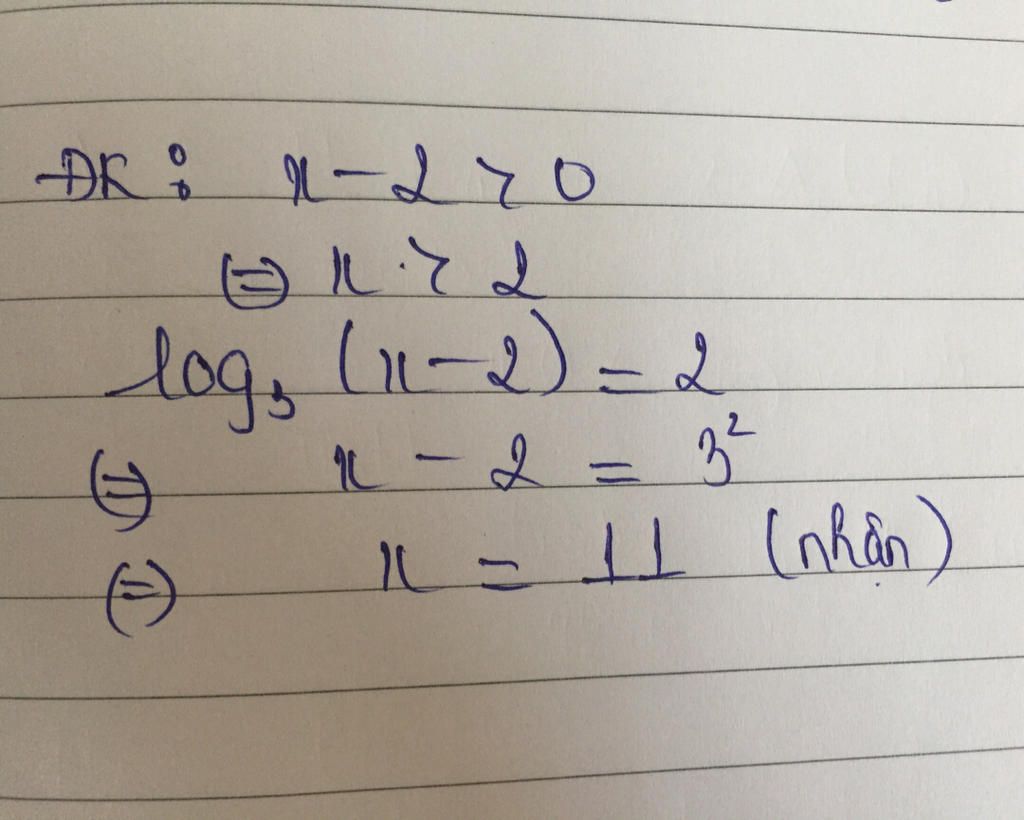 ĐK: x - 2 > 0
(=) x > 2
log₃ (x - 2) = 2
(=) x - 2 = 3²
(=) x = 11 (nhận)